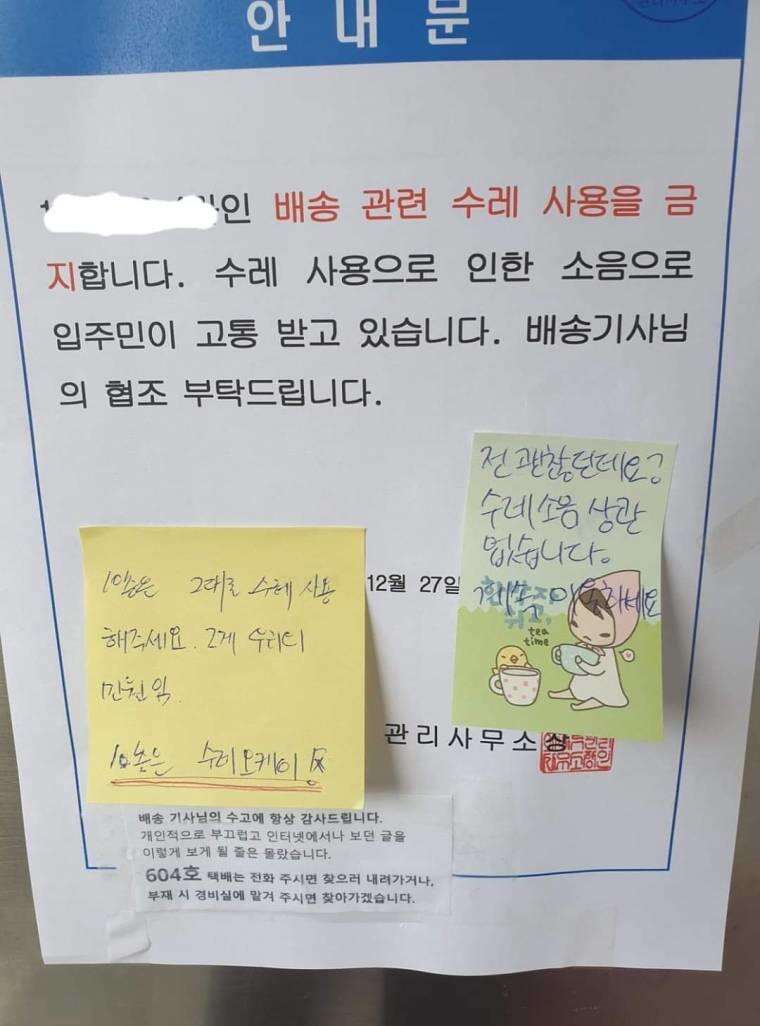 안 내 문
인 배송 관련 수레 사용을 금
지합니다. 수레 사용으로 인한 소음으로
입주민이 고통 받고 있습니다. 배송기사님
의 협조 부탁드립니다.
전 괜찮던데요?
수레 소음 상관
없습니다.
이용하세요
tea
time
12월 27일
그대로 수레 사용
해주세요. 그게 우리
관리사무소장
수레 오케이!
배송 기사님의 수고에 항상 감사드립니다.
개인적으로 부끄럽고 인터넷에서나 보던 글을
이렇게 보게 될 줄은 몰랐습니다.
604호 택배는 전화 주시면 찾으러 내려가거나,
부재 시 경비실에 맡겨 주시면 찾아가겠습니다.